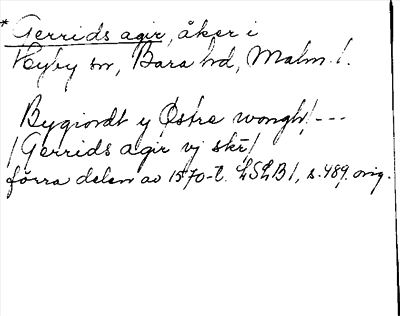 * Gerrids agir, åker i
Hyby sn, Bara hd, Malm. l.
Bygiordt y Østre wongh/---
/Gerrids agir vj skr/
förra delen av 1570-t. LSLB 1, s. 489. orig.